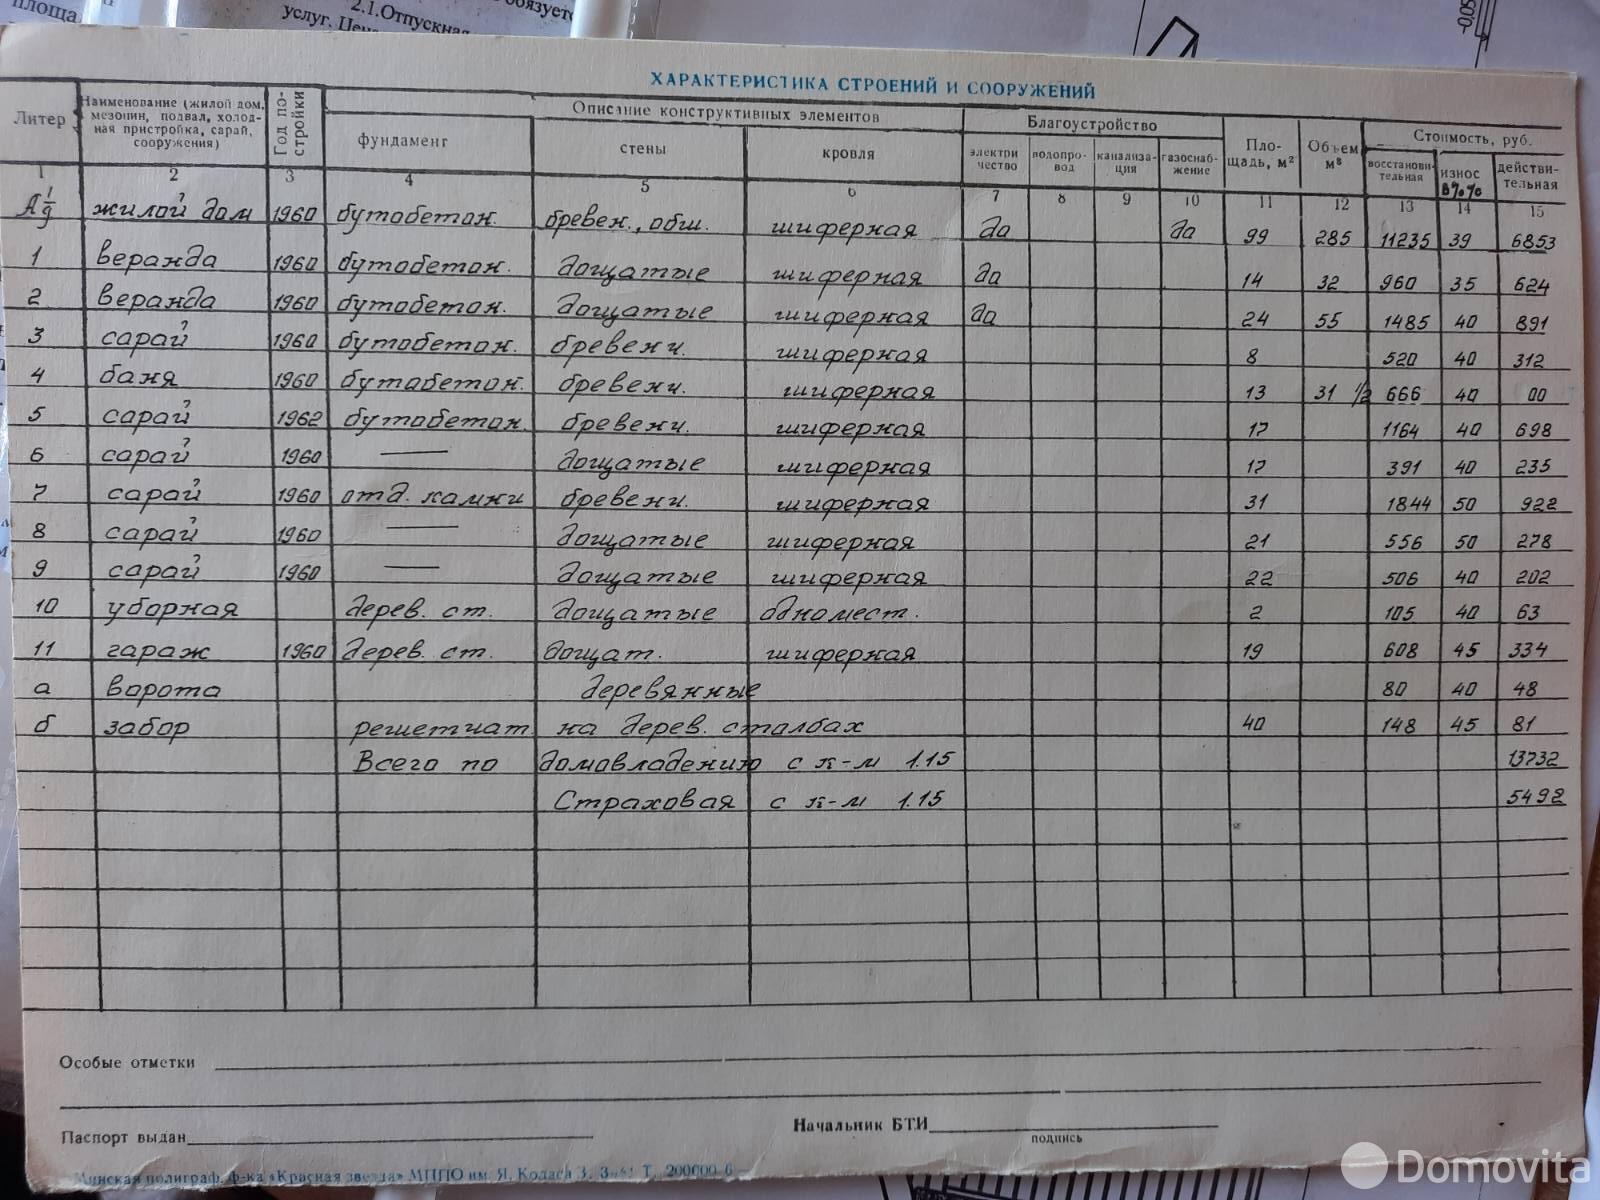 площа
2.1.Отпускная
услуг. Цена
ХАРАКТЕРИСТИКА СТРОЕНИЙ И СООРУЖЕНИЙ
Литер
Наименование (жилой дом, мезонин, подвал, холодная пристройка, сарай, сооружения)
Год постройки
Описание конструктивных элементов
Благоустройство
Площадь, м²
Объем м³
Стоимость, руб.
фундамент стены кровля электричество водопровод канализация газоснабжение восстановительная износ в % % действительная
1 2 3 4 5 6 7 8 9 10 11 12 13 14 15
А 1/9 жилой дом 1960 бутобетон. бревен., обш. шиферная да да 99 285 11235 39 6853
1 веранда 1960 бутобетон. дощатые шиферная да 14 32 960 35 624
2 веранда 1960 бутобетон. дощатые шиферная да 24 55 1485 40 891
3 сарай 1960 бутобетон. бревенч. шиферная 8 520 40 312
4 баня 1960 бутобетон. бревенч. шиферная 13 31 1/2 666 40 00
5 сарай 1962 бутобетон. бревенч. шиферная 17 1164 40 698
6 сарай 1960 — дощатые шиферная 17 391 40 235
7 сарай 1960 отд. камни бревенч. шиферная 31 1844 50 922
8 сарай 1960 — дощатые шиферная 21 556 50 278
9 сарай 1960 — дощатые шиферная 22 506 40 202
10 уборная дерев. ст. дощатые одномест. 2 105 40 63
11 гараж 1960 дерев. ст. дощат. шиферная 19 608 45 334
а ворота деревянные 80 40 48
б забор решетчат. на дерев. столбах 40 148 45 81
Всего по домовладению с к-м 1.15 13732
Страховая с к-м 1.15 5492
Особые отметки
Паспорт выдан
Начальник БТИ
подпись
Минская полиграф. ф-ка «Красная звезда» МППО им. Я. Коласа З. Т. 200000
Domovita